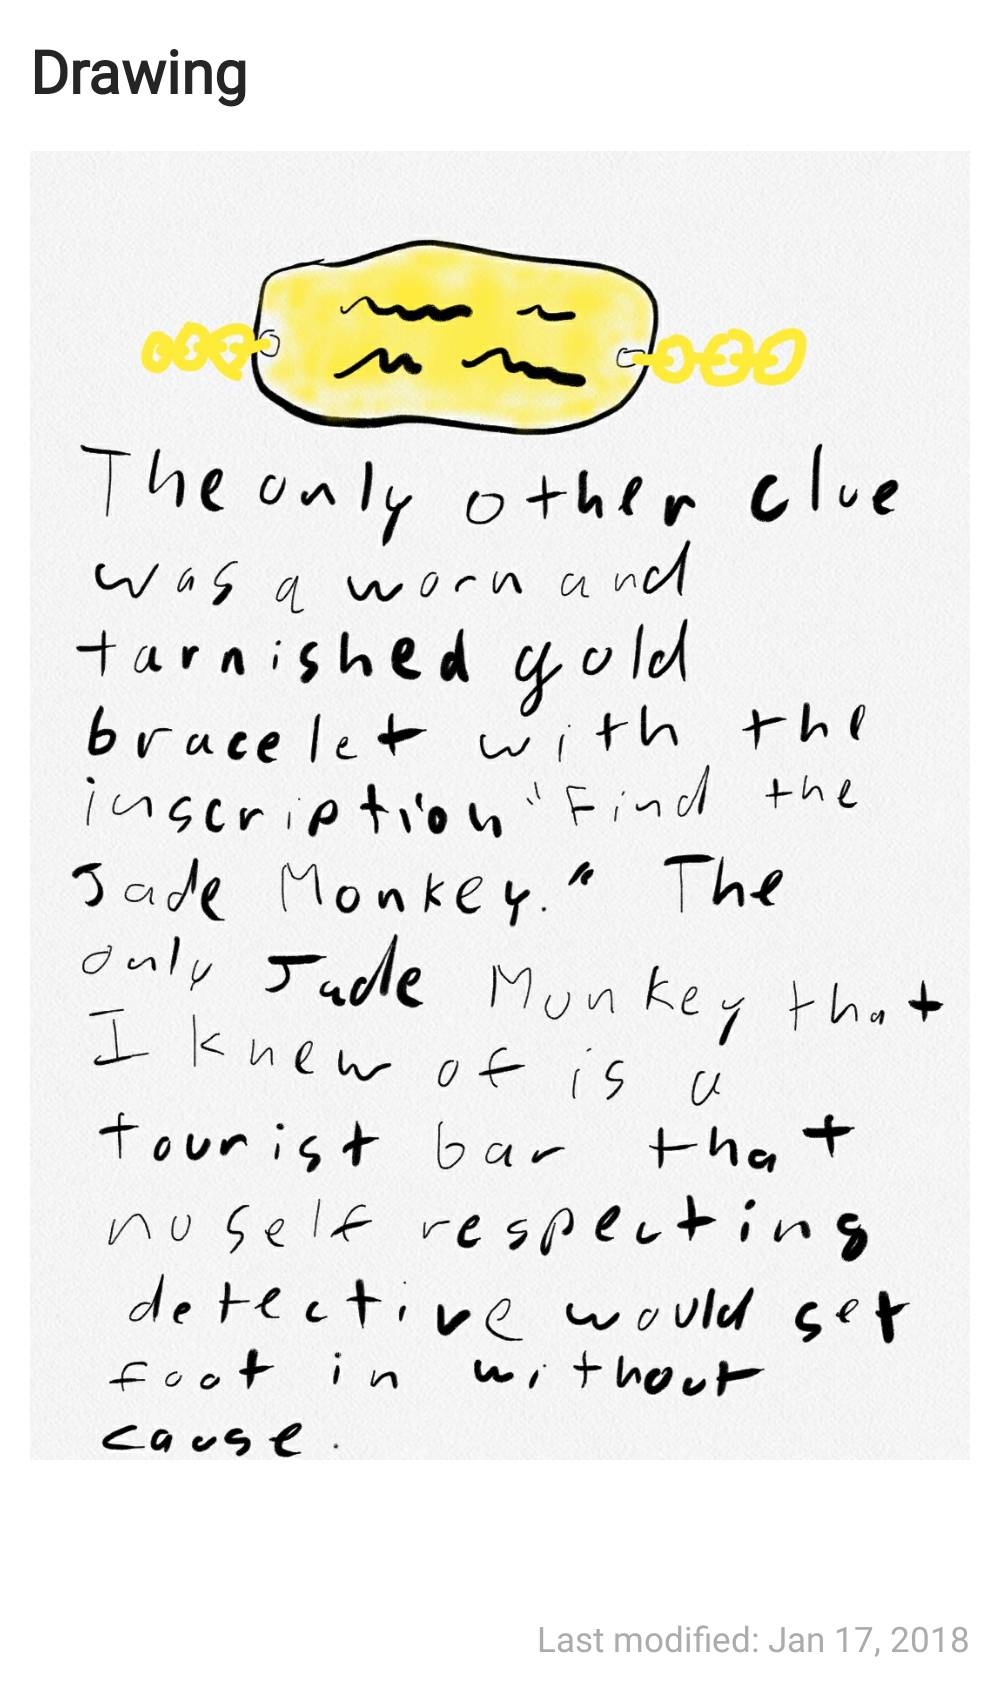 Drawing
The only other clue
was a worn and
tarnished gold
bracelet with the
inscription "Find the
Jade Monkey." The
only Jade Monkey that
I knew of is a
tourist bar that
no self respecting
detective would set
foot in without
cause.
Last modified: Jan 17, 2018